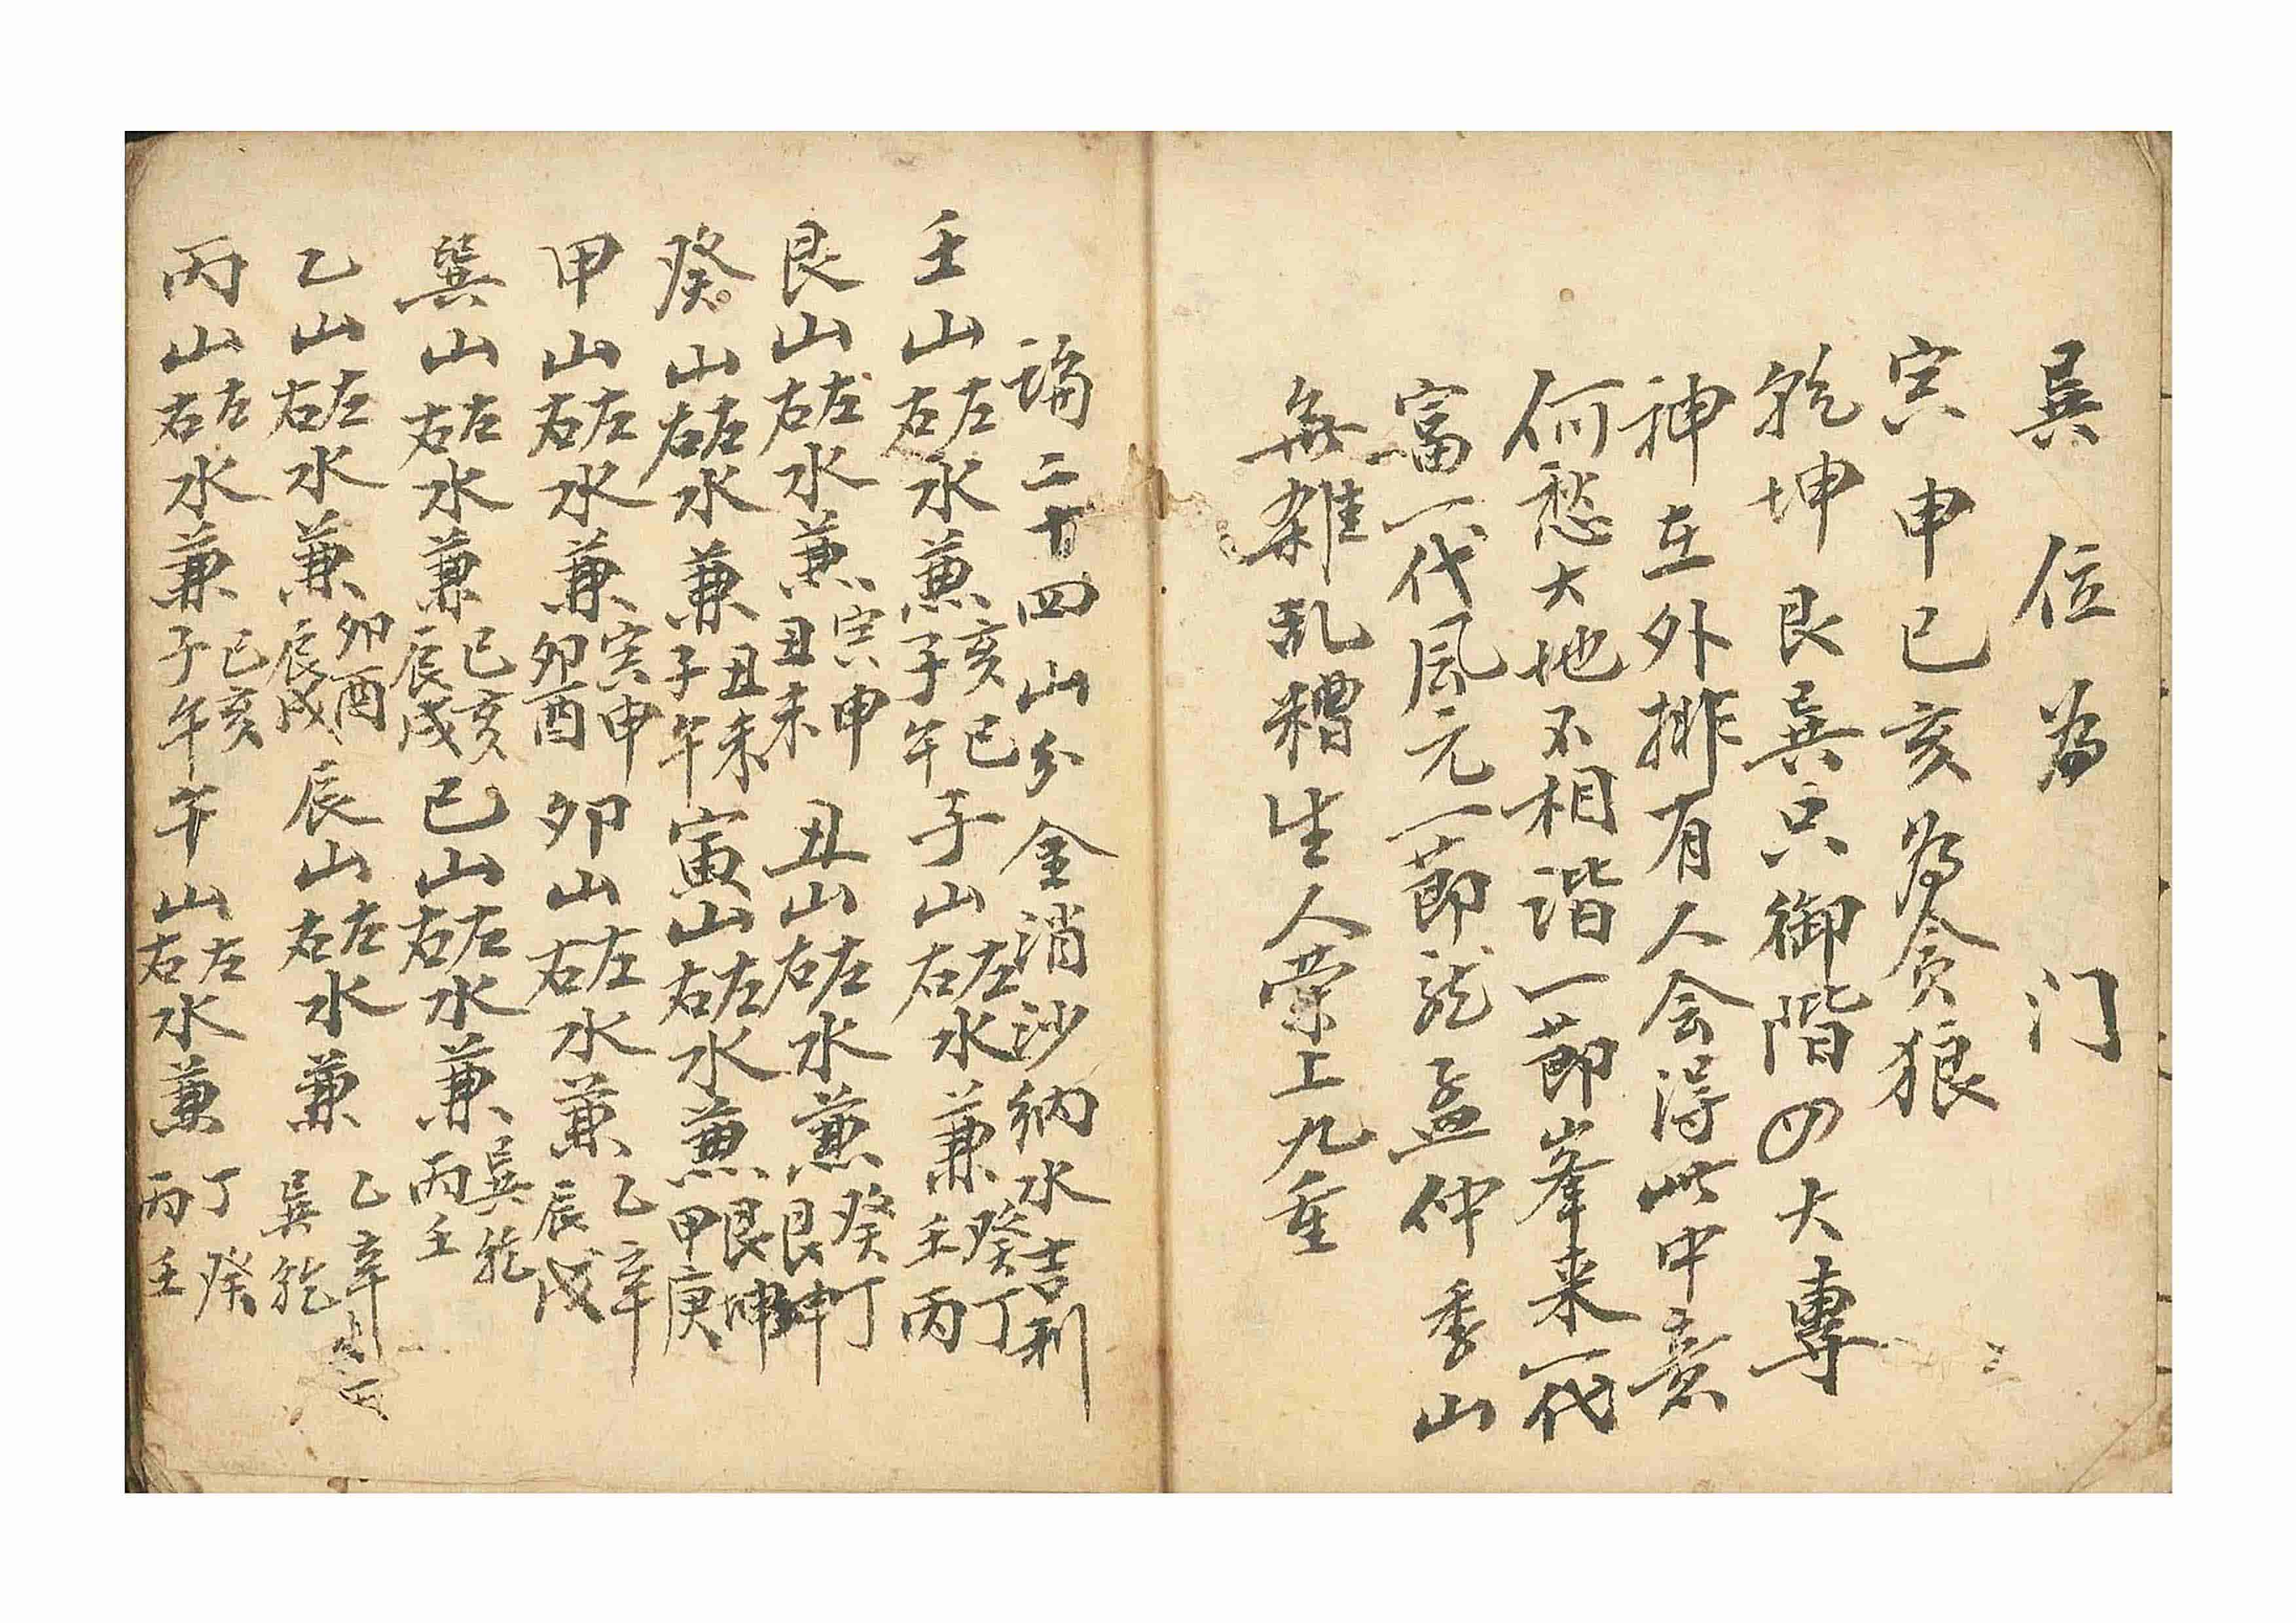 巽位为门
寅申巳亥为贪狼
乾坤艮巽只御階四大專
神在外排有人会得此中意
何愁大地不相谐一節峯来一代
富一代風元一節龍孟仲季山
無雜乱糟生人荣上九重
論二十四山分金消沙納水吉利
壬山左右水兼亥巳子午子山左右水兼癸丁壬丙
艮山左右水兼寅申丑未丑山左右水兼癸丁艮坤
癸山左右水兼丑未子午寅山左右水兼艮坤甲庚
甲山左右水兼寅申卯酉卯山左右水兼乙辛辰戌
巽山左右水兼巳亥辰戌巳山左右水兼巽乾丙壬
乙山左右水兼卯酉辰戌辰山左右水兼乙辛巽乾
丙山左右水兼巳亥子午午山左右水兼丁癸丙壬